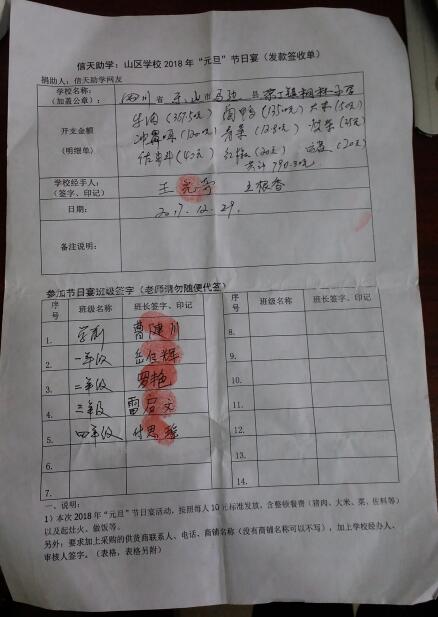 信天助学：山区学校2018年“元旦”节日宴（发款签收单）
捐助人：信天助学网友
学校名称：
（加盖公章）：
四川省 乐山市马边县
开支金额
（明细单）
牛肉（367.5元）
（120元） 青菜
（40元） 红糖（20元） （20元）
共计790.30元
学校经手人：
（签字、印记）
王
王根香
日期：
2017.12.29.
备注说明：
参加节日宴班级签字（老师请勿随便代签）
序号 班级名称 班长签字、印记 序号 班级名称 班长签字、印记
1. 学前 曹健川 8.
2. 一年级 岳仕辉 9.
3. 二年级 罗艳 10.
4. 三年级 雷启文 11.
5. 四年级 付思 12.
6. 13.
7. 14.
一、说明：
1）本次2018年“元旦”节日宴活动，按照每人10元标准发放，含整顿餐费（猪肉、大米、菜、佐料等）
以及起灶火、做饭等。
另外：要求加上采购的供货商联系人、电话、商铺名称（没有商铺名称可以不写），加上学校经办人、
审核人签字。（表格，表格另附）